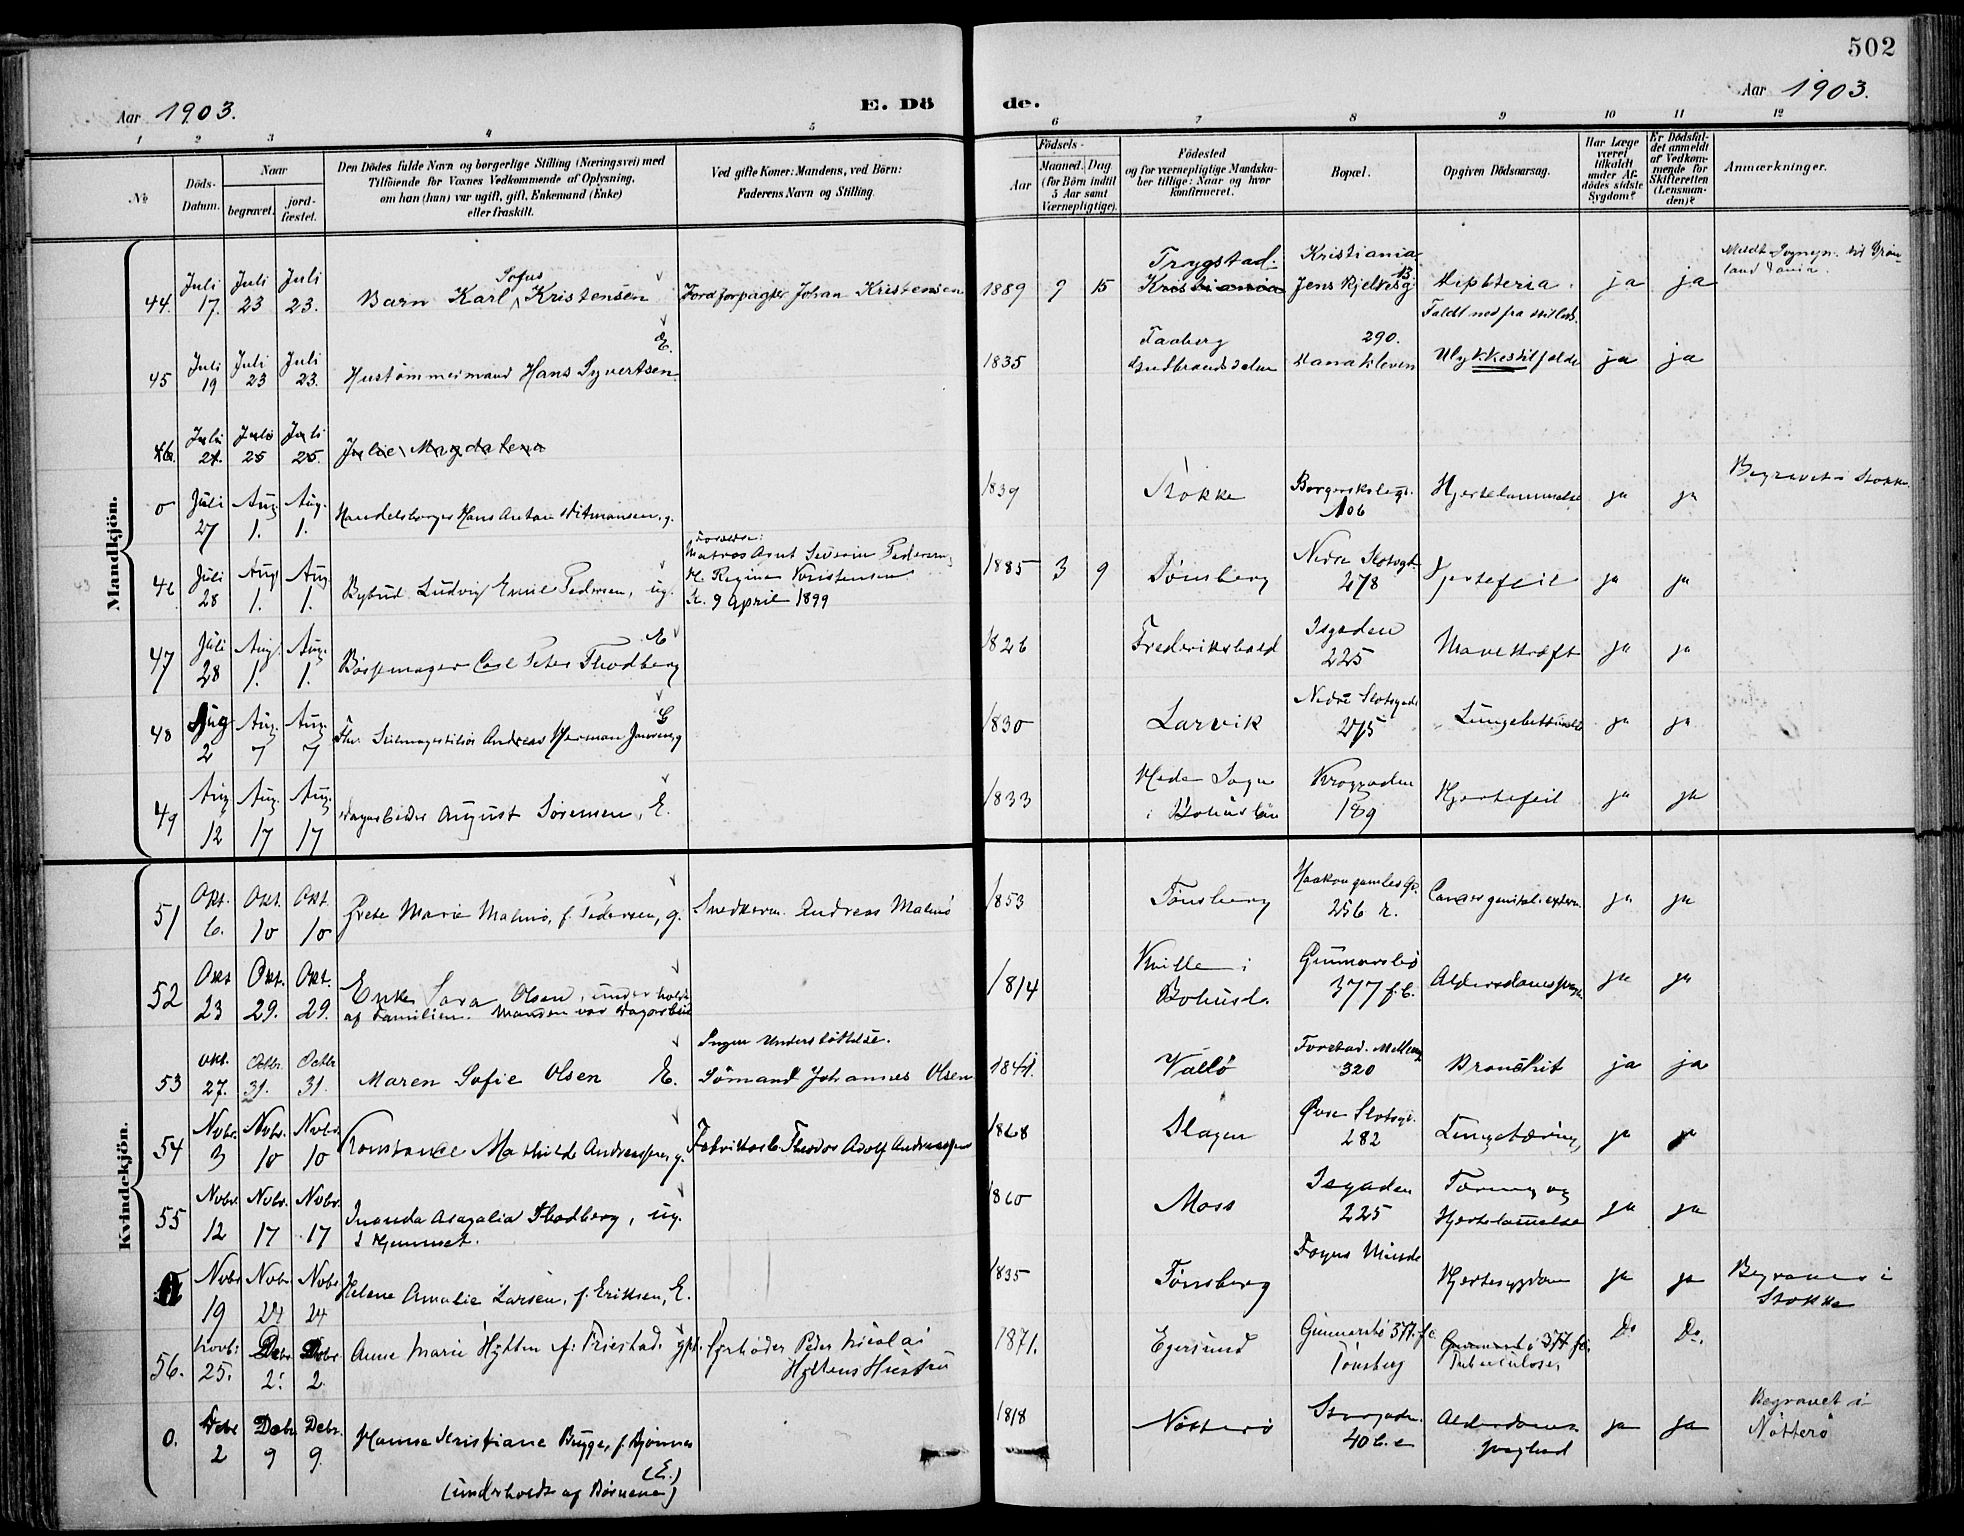 502
Aar 1903.
E. Dö
de.
Aar 1903.
1 2 3 4 5 6 7 8 9 10 11 12
No
Döds-
Datum.
Naar
begravet.
jord-
fæstet.
Den Dödes fulde Navn og borgerlige Stilling (Næringsvei) med
Tilföiende for Voxnes Vedkommende af Oplysning,
om han (hun) var ugift, gift, Enkemand (Enke)
eller fraskilt.
Ved gifte Koner: Mandens, ved Börn:
Faderens Navn og Stilling.
Födsels-
Aar
Maaned. Dag
(for Börn indtil
5 Aar samt
Værnepligtige).
Födested
og for værnepligtige Mandska-
ber tillige: Naar og hvor
konfirmeret.
Bopæl.
Opgiven Dödsaarsag.
Har Læge
været
tilkaldt
under Af-
dödes sidste
Sygdom?
Er Dödsfal-
det anmeldt
af Vedkom-
mende for
Skifteretten
(Lensman-
den)?
Anmærkninger.
Mandkjön.
44. Juli 17. Juli 23 Juli 23. Barn Karl Sofus Kristensen Jordforpagter Johan Kristensen 1889 9 15 Trygstad. Kristiania Kristiania Jens Bjelkesg. 13. Diphteria. ja ja
45 Juli 19 Juli 23 Juli 23. Hustømmermand Hans Syvertsen E. 1835 Faaberg Gudbrandsdalen 290. Danakleven Faldt ned fra Ulykkestilfælde ja ja
46. Juli 21. Juli 25 Juli 25. Julie Magdalena
0 Juli 27 Aug. 1. Aug. 1. Handelsborger Hans Anton Ditmansen, g. 1839 Stokke 106 Hjertelammelse ja ja Begravet i Stokke.
46 Juli 28 Aug. 1. Aug. 1. Bybud Ludvig Emil Pedersen, ug. Forældre: Matros Agnt Severin Pedersen, H. Regine Kristensen K. 9 April 1899 1885 3 9 Tønsberg Nedre Slotsgt. 278 Hjertefeil ja ja
47 Juli 28 Aug. 1. Aug. 1. Børsemager Carl Peter Thodberg E 1826 Frederikshald Isgaden 225 Mavekræft ja ja
48 Aug 2 Aug. 7 Aug. 7 Fhv. Seilmagerskibs Andreas Herman Jansen, g 1830 Larvik Nedre Slotsgade 275 Lungebetændelse ja ja
49 Aug. 12 Aug. 17 Aug. 17 Dagarbeider August Sørensen, E. 1833 Hede Sogn i Bohuslän Kroggaden 189 Hjertefeil ja ja
Kvindekjön.
51 Okt. 6. Okt. 10 Okt. 10 Grete Marie Malmö, f. Pedersen, g. Snedkerm. Andreas Malmö 1853 Tønsberg Haakon gamles G. 256 r. Cancer genitali extern. ja ja
52 Okt 23 Okt. 29. Okt. 29. Enke Sara Olsen, underholdt af Familien. Manden var Dagarbeid 1814 Kville i Bohusl. Gunnarsbö 377 f.b. Alderdomssvagh. ja ja
53 Okt. 27. Octbr 31. Octbr 31. Maren Sofie Olsen E. Ingen Understøttelse. Sömand Johannes Olsen 1841. Vallö 320 Bronchit ja ja
54 Novbr. 3 Novbr. 10 Novbr. 10 Konstance Mathilde Andreassen g. Fabrikarb. Theodor Adolf Andreassen 1868 Slagen Øvre Slotsgt. 282 Lungetæring ja ja
55 Novbr 12 Novbr. 17 Novbr. 17 Inanda Thodberg, ug. I Hjemmet. 1860 Moss Isgaden 225 Tæring og Hjertelammelse ja ja
Novbr 19 Novbr. 24 Novbr 24 Helene Amalie Larsen, f. Eriksen, E. 1835 Tønsberg Foyns Minde Hjertesygdom ja ja Begraves i Stokke
56. Novbr: 25. Debr 2. Debr 2. Anne Marie Hytten f. Friestad. gift. Fyrbøder Peder Nicolai Hyttens Hustru 1871. Egersund Gunnarsbö 377. f.c. Tönsberg Gunnarsbö 377 fc. Tuberculose. Do Do.
0. Debr 2 Debr. 9 Debr. 9. Hanna Kristiane Brygge, f. Bjönnes (E.) (underholdt af Børnene) 1818 Nötterö Storgaden 40 Alderdoms svaghed ja ja Begravet i Nötterö